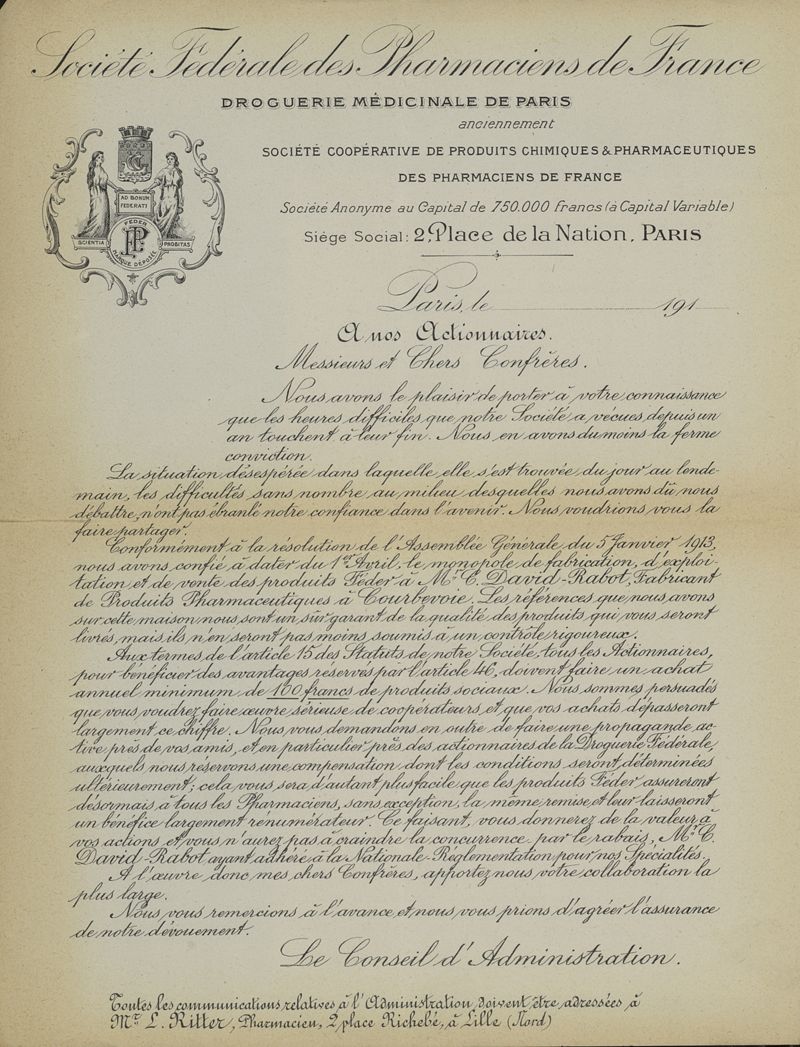 Société Fédérale des Pharmaciens de France
DROGUERIE MÉDICINALE DE PARIS
anciennement
SOCIÉTÉ COOPÉRATIVE DE PRODUITS CHIMIQUES & PHARMACEUTIQUES
DES PHARMACIENS DE FRANCE
Société Anonyme au Capital de 750.000 Francs (à Capital Variable)
Siège Social: 2, Place de la Nation, PARIS
AD BONUM
FEDERATI
SCIENTIA
PROBITAS
FEDER
FP
MARQUE DÉPOSÉE
Paris, le 191
A nos Actionnaires.
Messieurs et Chers Confrères.
Nous avons le plaisir de porter à votre connaissance
que les heures difficiles que notre Société a vécues depuis un
an touchent à leur fin. Nous en avons du moins la ferme
conviction.
La situation désespérée dans laquelle elle s'est trouvée du jour au lende-
main, les difficultés sans nombre au milieu desquelles nous avons dû nous
débattre, n'ont pas ébranlé notre confiance dans l'avenir. Nous voudrions vous la
faire partager.
Conformément à la résolution de l'Assemblée Générale du 5 Janvier 1913,
nous avons confié à dater du 1er Avril, le monopole de fabrication, d'exploi-
tation et de vente des produits Féder à Mr C. David-Rabot, Fabricant
de Produits Pharmaceutiques à Courbevoie. Les références que nous avons
sur cette maison nous sont un sûr garant de la qualité des produits qui vous seront
livrés, mais ils n'en seront pas moins soumis à un contrôle rigoureux.
Aux termes de l'article 15 des Statuts de notre Société, tous les Actionnaires,
pour bénéficier des avantages réservés par l'article 46, doivent faire un achat
annuel minimum de 100 francs de produits sociaux. Nous sommes persuadés
que vous voudrez faire œuvre sérieuse de coopérateurs et que vos achats dépasseront
largement ce chiffre. Nous vous demandons en outre de faire une propagande ac-
tive près de vos amis, et en particulier près des actionnaires de la Droguerie Fédérale,
auxquels nous réservons une compensation dont les conditions seront déterminées
ultérieurement; cela vous sera d'autant plus facile que les produits Féder assureront
désormais à tous les Pharmaciens, sans exception, la même remise et leur laisseront
un bénéfice largement rénumérateur. Ce faisant, vous donnerez de la valeur à
vos actions et vous n'aurez pas à craindre la concurrence par le rabais, Mr C.
David-Rabot ayant adhéré à la Nationale-Réglementation pour nos Spécialités.
A l'œuvre donc mes chers Confrères, apportez nous votre collaboration la
plus large.
Nous vous remercions à l'avance et nous vous prions d'agréer l'assurance
de notre dévouement.
Le Conseil d'Administration.
Toutes les communications relatives à l'Administration doivent être adressées à
Mr L. Ritter, Pharmacien, 2 place Richebé, à Lille (Nord)